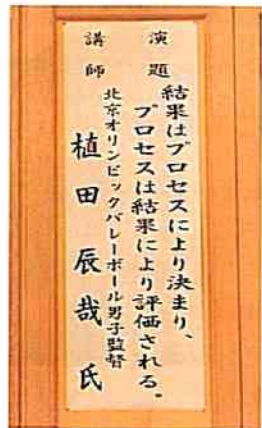 演題
結果はプロセスにより決まり、
プロセスは結果により評価される。
講師
北京オリンピックバレーボール男子監督
植田辰哉氏